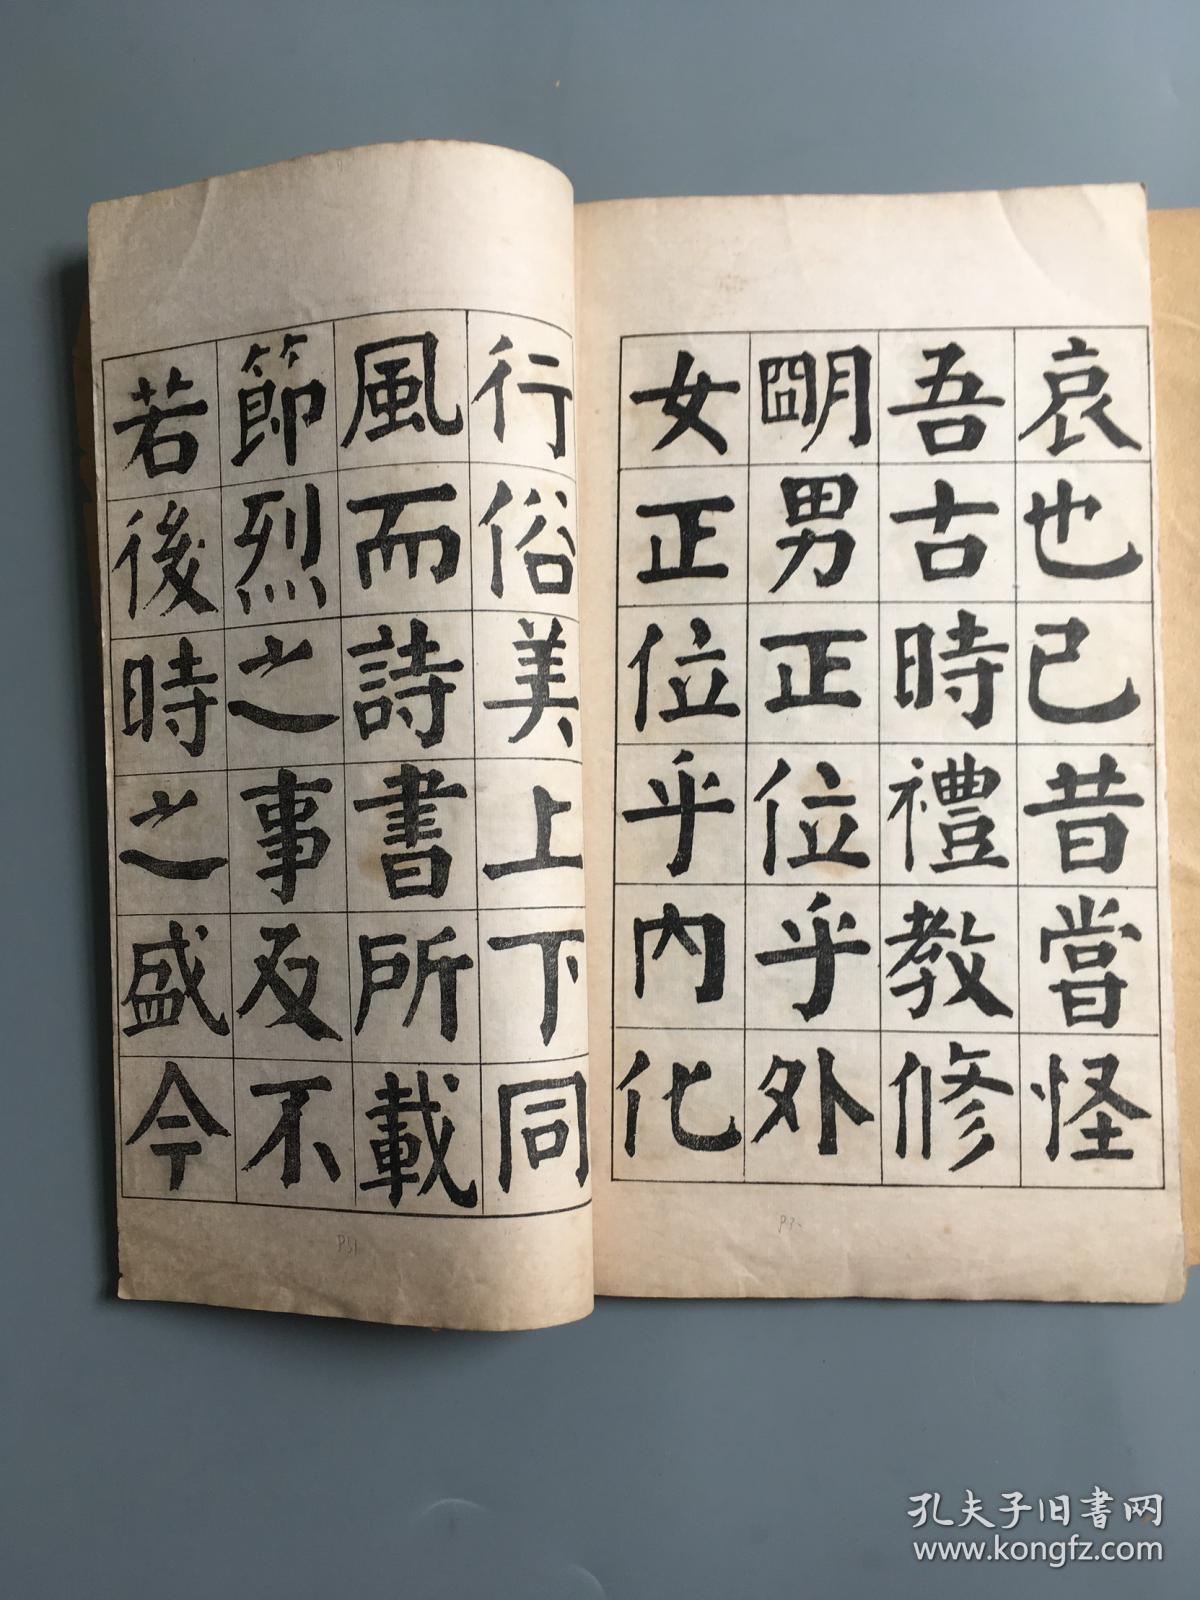 哀也已昔當怪
吾古時禮教修
朙男正位乎外
女正位乎內化
行俗美上下同
風而詩書所載
節烈之事及不
若後時之盛今
P31
孔夫子旧書网
www.kongfz.com